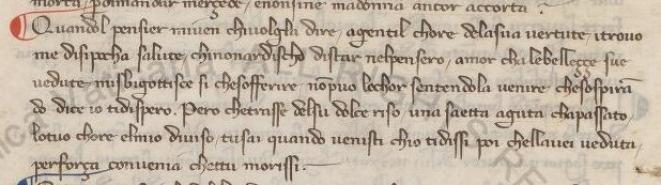 morta, poimandar merçede, enonsine madonna ancor accorta.
Quandol pensier miuen chiuolgla dire, agentil chore delasua uertute, itrouo
me disi pocha salute, chinonardischo distar nelpensero, amor cha lebelleççe sue
uedute misbigottisce si chesofferire, nopuo lochor sentendola uenire chesospiran
do dice io tidispero. Pero chetrasse delsu dolce riso, una saetta aguta chapassato
lotuo chore elmio diuiso, tusai quando uenisti chio tidissi poi chellauei ueduta,
perforça conuenia chettu morissi.